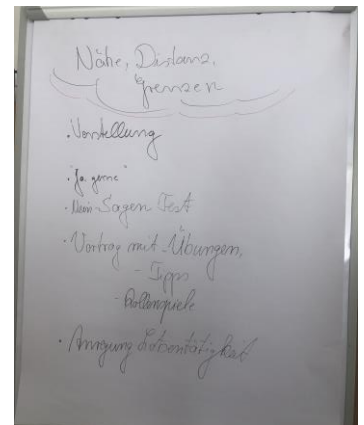 Nähe, Distanz,
Grenzen
· Vorstellung
· "Ja gerne"
· Nein-Sagen Test
· Vortrag mit Übungen,
- Tipps
- Rollenspiele
· Anregung